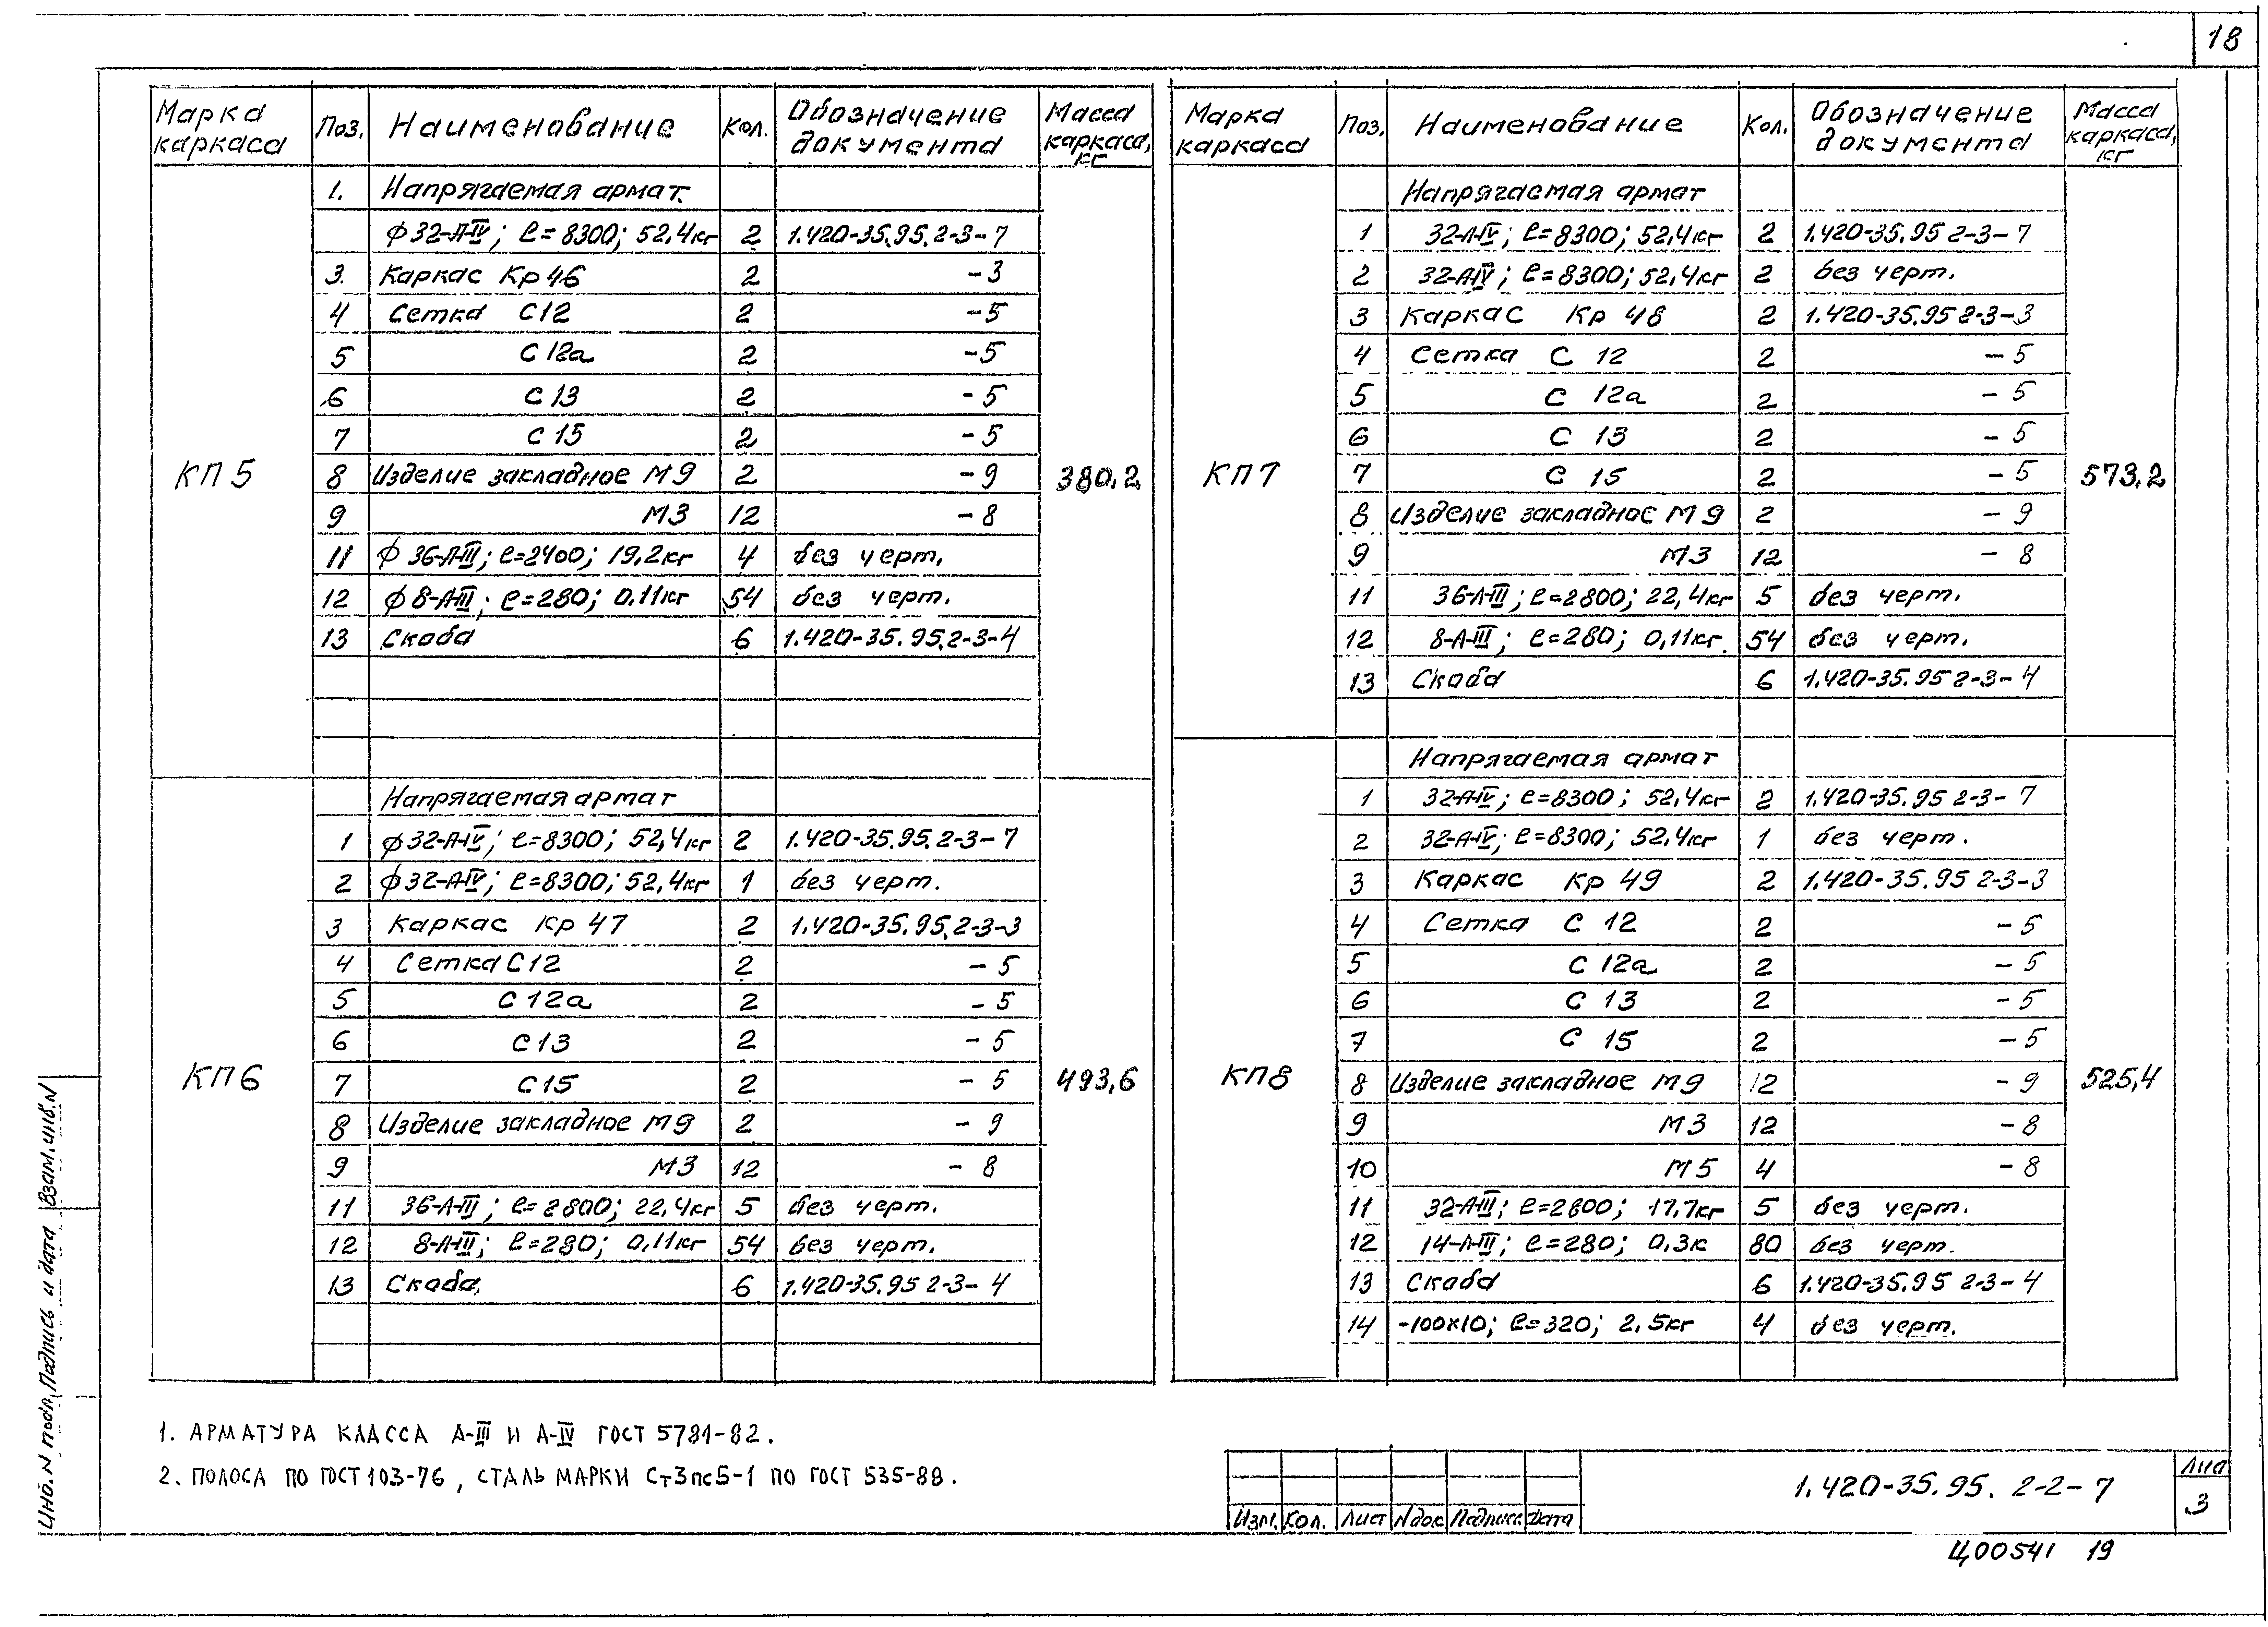 18
Марка каркаса Поз. Наименование Кол. Обозначение документа Масса каркаса, кг
КП5 380,2
1. Напрягаемая армат.
ϕ32-А-IV; ℓ=8300; 52,4кг 2 1.420-35.95.2-3-7
3. Каркас Кр46 2 -3
4 Сетка С12 2 -5
5 С12а 2 -5
6 С13 2 -5
7 С15 2 -5
8 Изделие закладное М9 2 -9
9 М3 12 -8
11 ϕ36-А-III; ℓ=2400; 19,2кг 4 без черт.
12 ϕ8-А-III; ℓ=280; 0,11кг 54 без черт.
13 Скоба 6 1.420-35.95.2-3-4
КП6 493,6
Напрягаемая армат
1 ϕ32-А-IV; ℓ=8300; 52,4кг 2 1.420-35.95.2-3-7
2 ϕ32-А-IV; ℓ=8300; 52,4кг 1 без черт.
3 Каркас Кр47 2 1.420-35.95.2-3-3
4 Сетка С12 2 -5
5 С12а 2 -5
6 С13 2 -5
7 С15 2 -5
8 Изделие закладное М9 2 -9
9 М3 12 -8
11 36-А-III; ℓ=2800; 22,4кг 5 без черт.
12 8-А-III; ℓ=280; 0,11кг 54 без черт.
13 Скоба, 6 1.420-35.95 2-3-4
Марка каркаса Поз. Наименование Кол. Обозначение документа Масса каркаса, кг
КП7 573,2
Напрягаемая армат
1 32-А-IV; ℓ=8300; 52,4кг 2 1.420-35.95 2-3-7
2 32-А-IV; ℓ=8300; 52,4кг 2 без черт.
3 Каркас Кр 48 2 1.420-35.95 2-3-3
4 Сетка С 12 2 -5
5 С 12а 2 -5
6 С 13 2 -5
7 С 15 2 -5
8 Изделие закладное М9 2 -9
9 М3 12 -8
11 36-А-III; ℓ=2800; 22,4кг 5 без черт.
12 8-А-III; ℓ=280; 0,11кг. 54 без черт.
13 Скоба 6 1.420-35.95 2-3-4
КП8 525,4
Напрягаемая армат
1 32-А-IV; ℓ=8300; 52,4кг 2 1.420-35.95 2-3-7
2 32-А-IV; ℓ=8300; 52,4кг 1 без черт.
3 Каркас Кр 49 2 1.420-35.95 2-3-3
4 Сетка С 12 2 -5
5 С 12а 2 -5
6 С 13 2 -5
7 С 15 2 -5
8 Изделие закладное М9 2 -9
9 М3 12 -8
10 М5 4 -8
11 32-А-III; ℓ=2800; 17,7кг 5 без черт.
12 14-А-III; ℓ=280; 0,3к 80 без черт.
13 Скоба 6 1.420-35.95 2-3-4
14 -100х10; ℓ=320; 2,5кг 4 без черт.
1. АРМАТУРА КЛАССА А-III И А-IV ГОСТ 5781-82.
2. ПОЛОСА ПО ГОСТ 103-76, СТАЛЬ МАРКИ Ст3пс5-1 ПО ГОСТ 535-88.
Изм. Кол. Лист Nдок Подпись Дата
1.420-35.95. 2-2-7
Лист
3
Инв. N подл. Подпись и дата Взам. инв. N
Ц00541 19